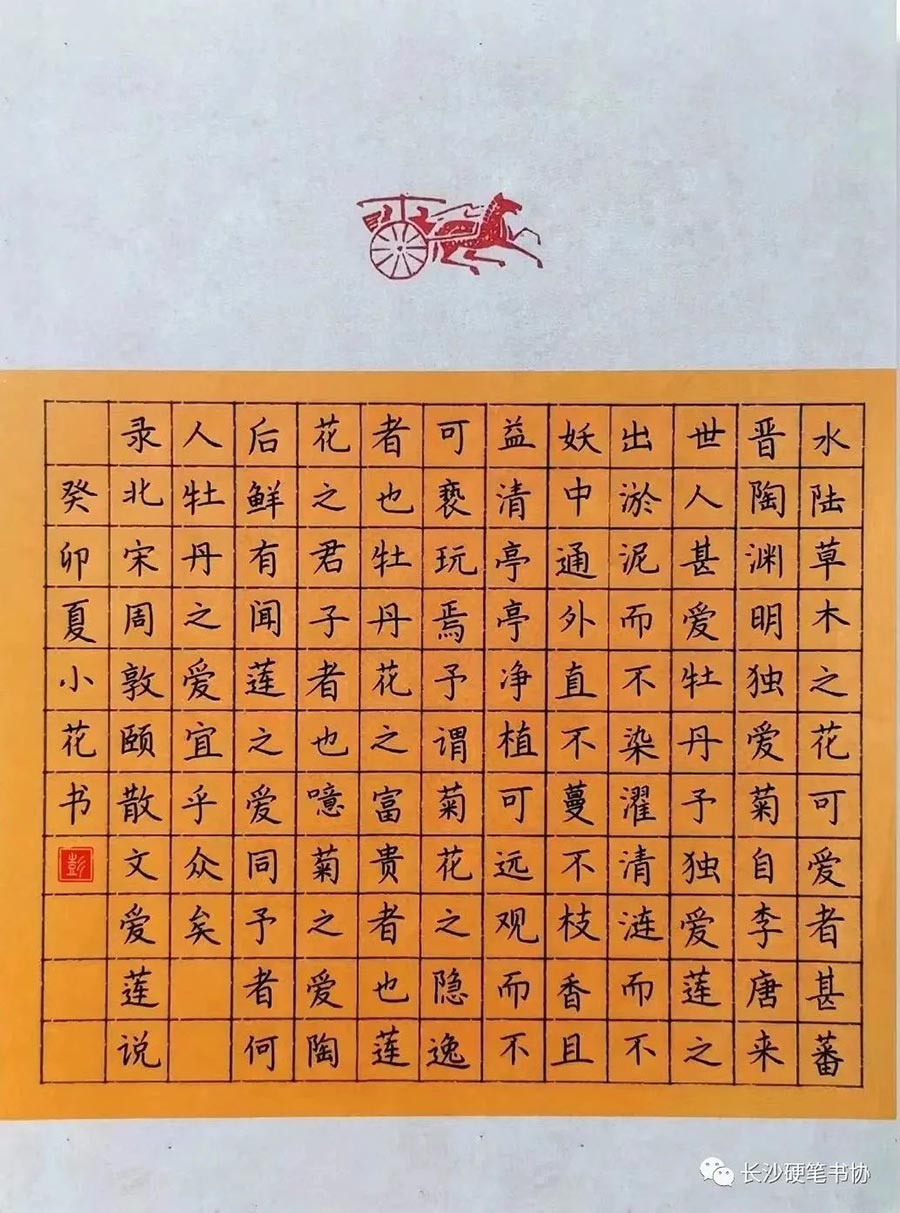 水陆草木之花可爱者甚蕃
晋陶渊明独爱菊自李唐来
世人甚爱牡丹予独爱莲之
出淤泥而不染濯清涟而不
妖中通外直不蔓不枝香且
益清亭亭净植可远观而不
可亵玩焉予谓菊花之隐逸
者也牡丹花之富贵者也莲
花之君子者也噫菊之爱陶
后鲜有闻莲之爱同予者何
人牡丹之爱宜乎众矣
录北宋周敦颐散文爱莲说
癸卯夏小花书
彭
长沙硬笔书协